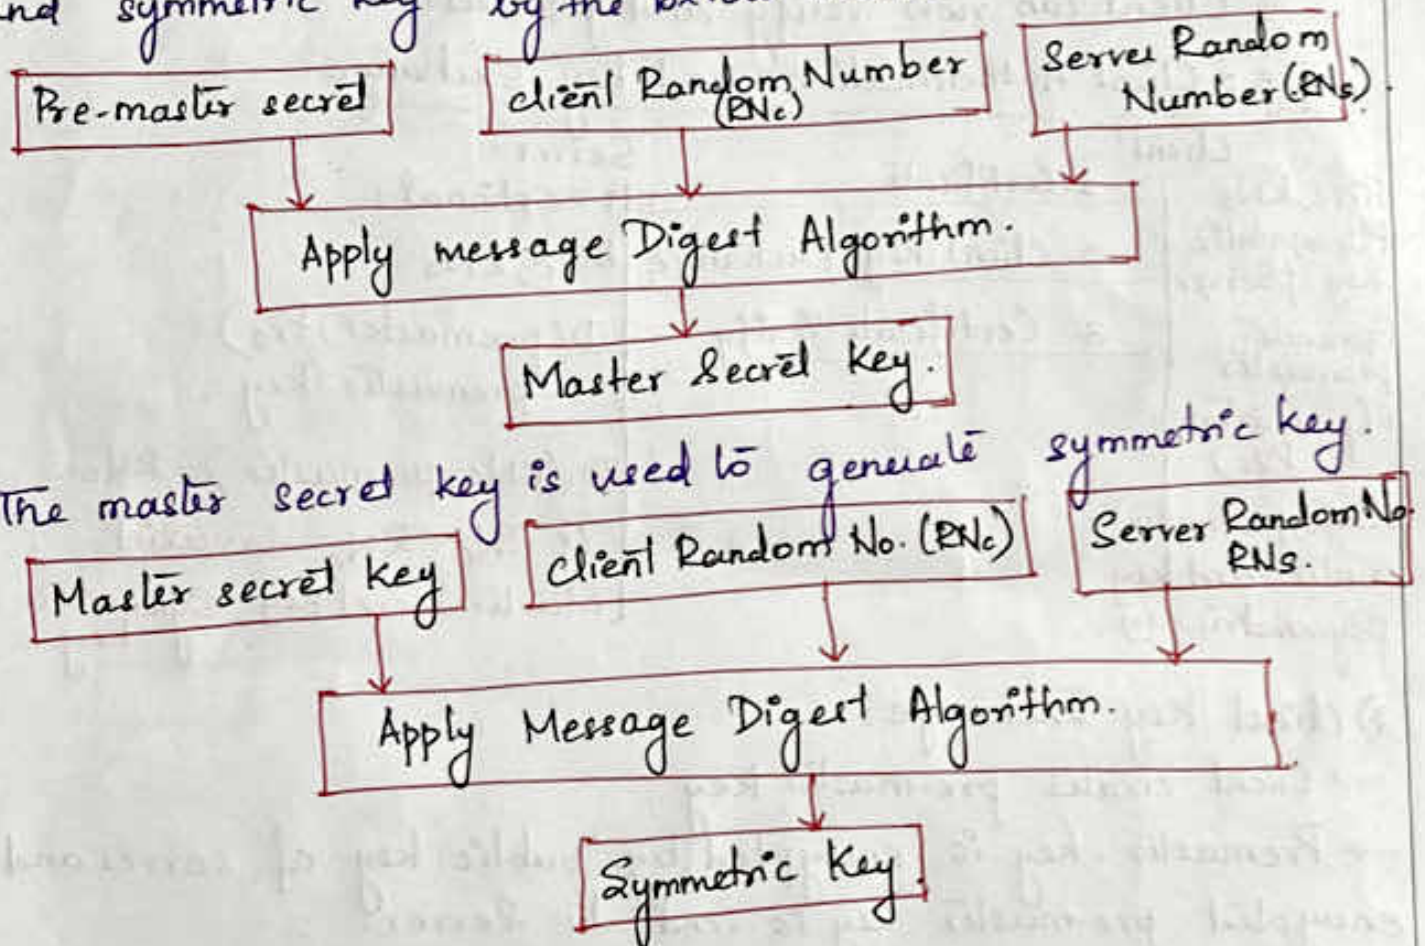 nd symmetric key by the below
Pre-master secret
client Random Number
(RNc)
Server Random
Number (RNs).
Apply message Digest Algorithm.
Master Secret key.
The master secret key is used to generate symmetric key.
Master secret key
client Random No. (RNc)
Server Random No.
RNs.
Apply Message Digest Algorithm.
Symmetric Key